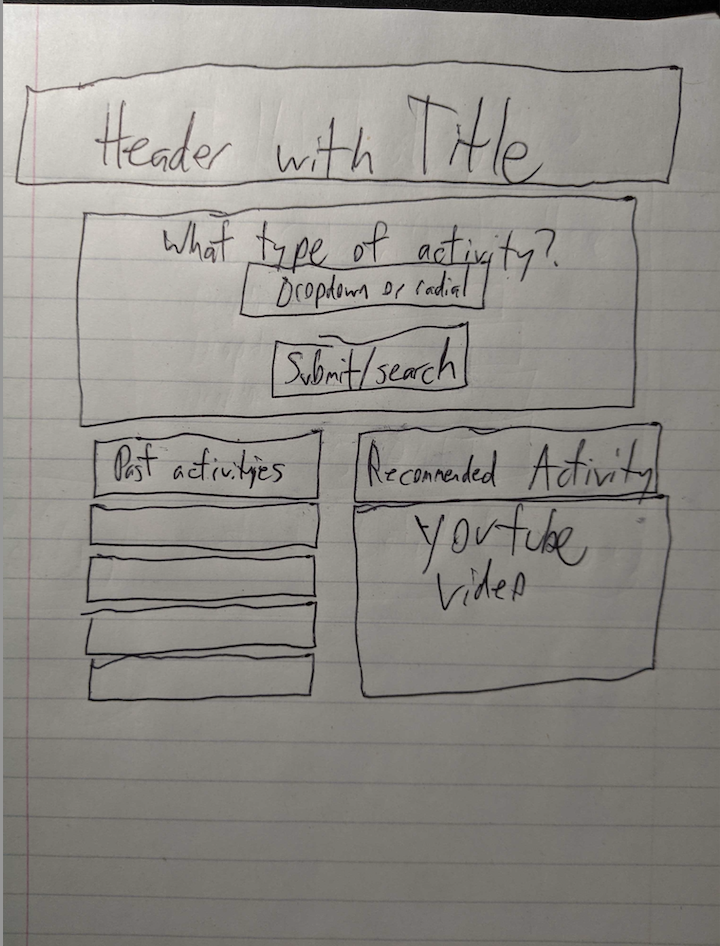 Header with Title
What type of activity?
Dropdown or radial
Submit/search
Past activities
Recommended Activity
Youtube
video